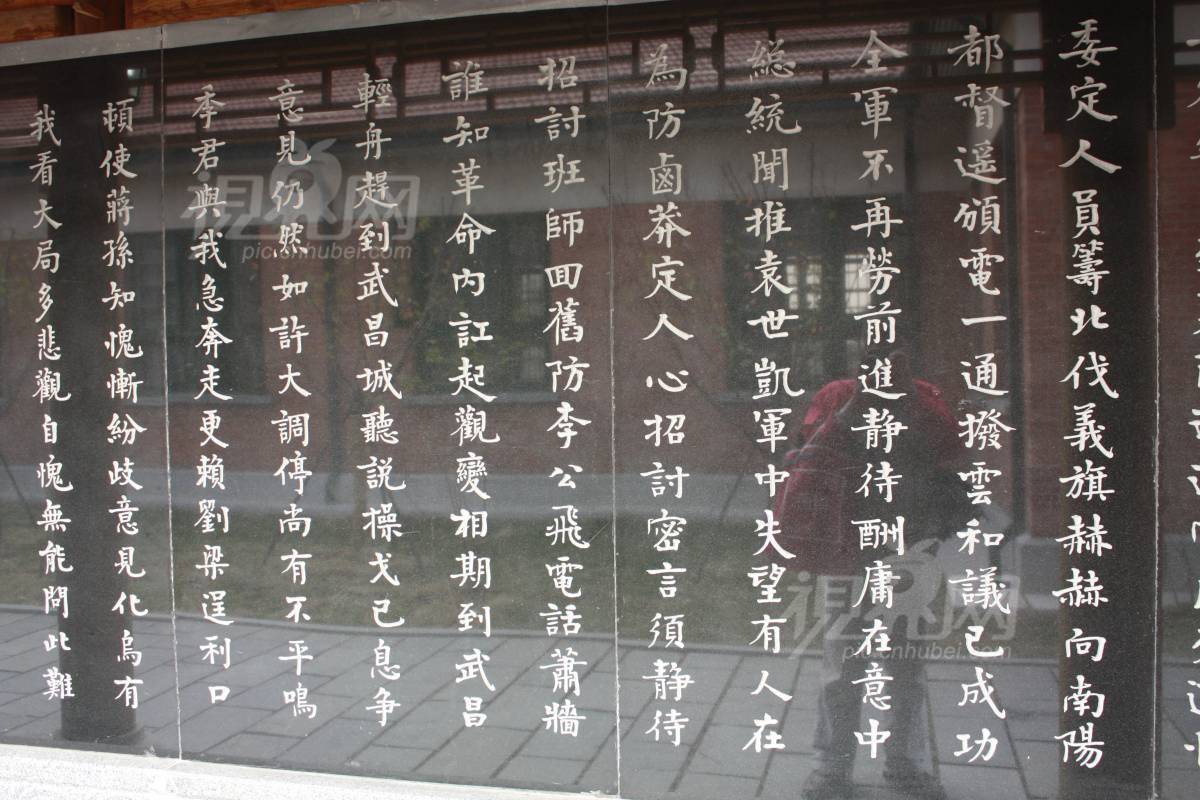 委定人員籌北伐義旗赫赫向南陽
都督遥頒電一通撥雲和議已成功
全軍不再勞前進静待酬庸在意中
総統聞推袁世凱軍中失望有人在
為防鹵莽定人心招討密言須静待
招討班師回舊防李公飛電話蕭牆
誰知革命内訌起觀變相期到武昌
輕舟趕到武昌城聽説操戈已息争
意見仍然如許大調停尚有不平鳴
季君與我急奔走更賴劉梁逞利口
頓使蔣孫知愧慚紛歧意見化烏有
我看大局多悲觀自愧無能問此難
視网
pictenhubei.com
視网
pictenhubei.com